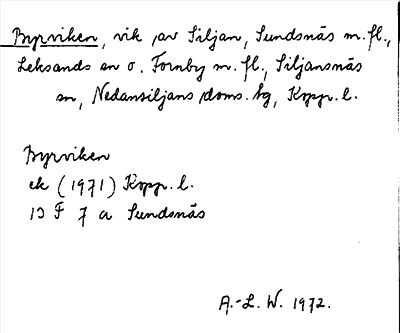 Byrviken, vik av Siljan, Sundsnäs m. fl.,
Leksands sn o. Fornby m. fl., Siljansnäs
sn, Nedansiljans doms. hg, Kopp. l.
Byrviken
ek (1971) Kopp. l.
13 F 7 a Sundsnäs
A.-L. W. 1972.